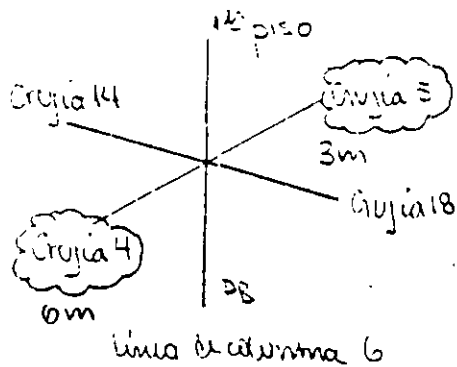 1er piso
Crujia 14
Crujia 5
3m
Crujia 18
Crujia 4
6m
PB
Linea de columna 6